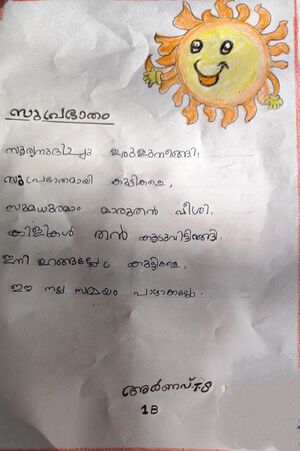 സുപ്രഭാതം
സൂര്യനുദിച്ചു ഇരുളുനീങ്ങി,
സുപ്രഭാതമായി കുട്ടികളെ,
സുമധുരമാം മാരുതൻ വീശി.
കിളികൾ തൻ കൂടുവിട്ടിറങ്ങി.
ഇനി ഉറങ്ങല്ലേ കുട്ടികളെ,
ഈ നല്ല സമയം പാഴാക്കല്ലേ.
അർണവ്.T.S
1B